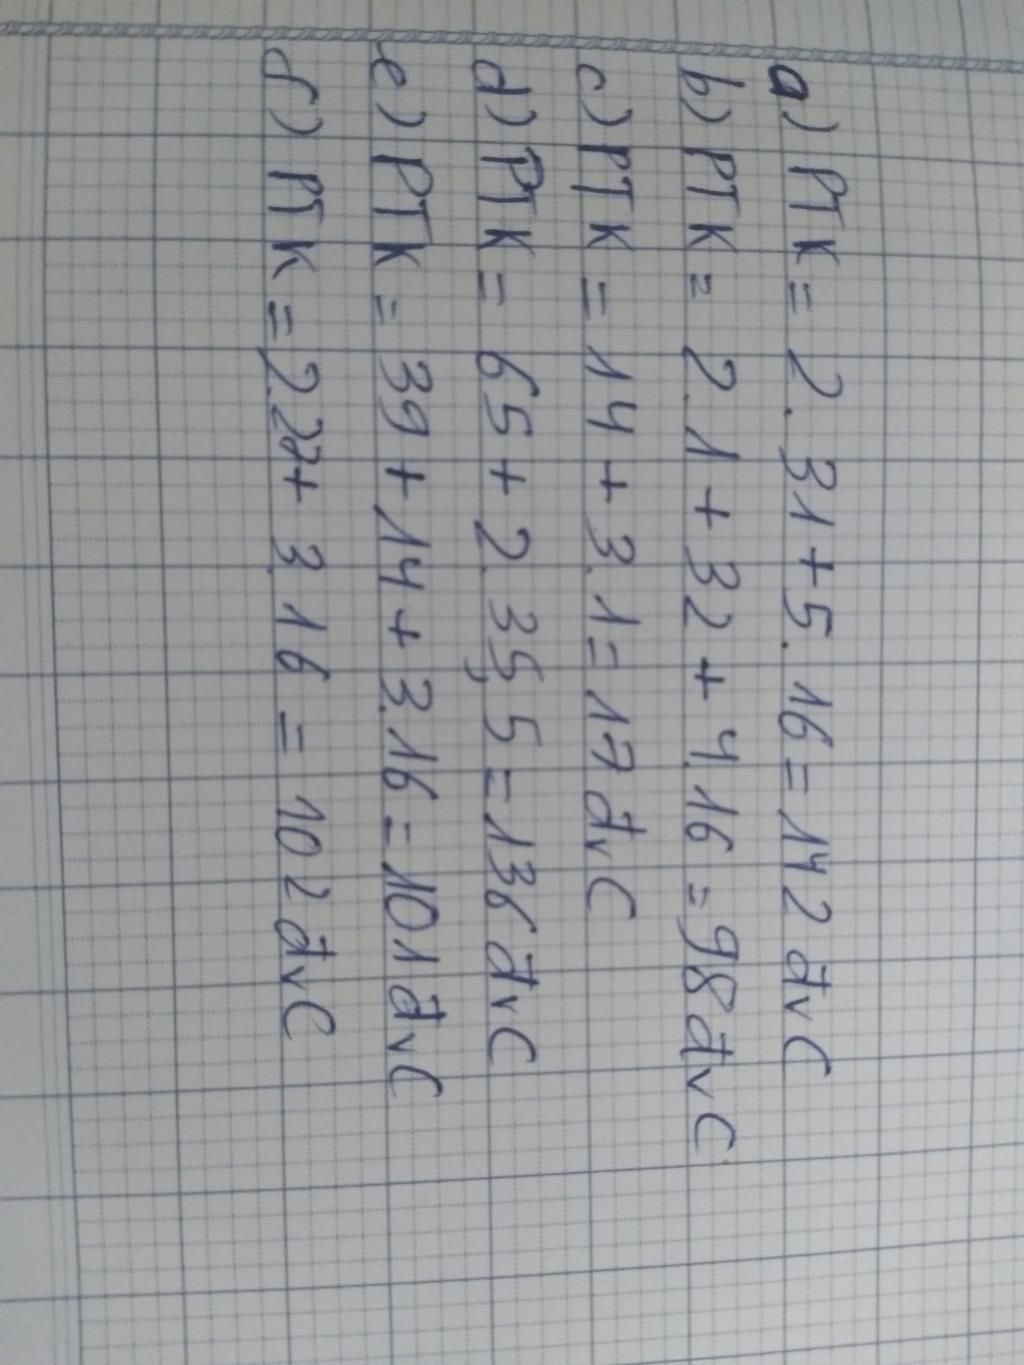 a) PTK = 2.31+5.16=142 đvC
b) PTK = 2.1+32+4.16=98đvC
c) PTK = 14+3.1=17đvC
d) PTK = 65+2.35,5=136đvC
e) PTK = 39+14+3.16=101đvC
f) PTK = 2.27+3.16=102đvC